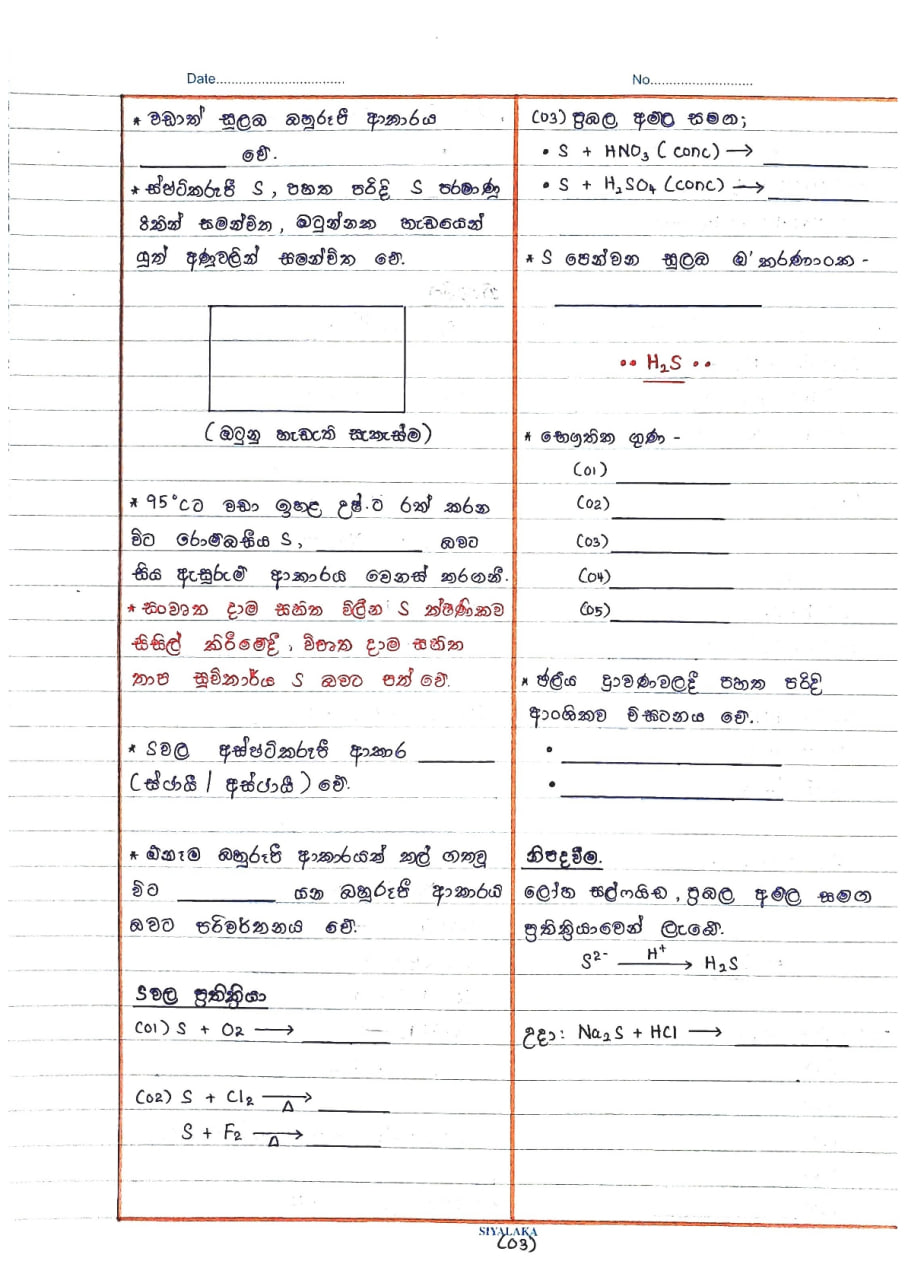 Date................................
No..........................
* වඩාත් සුලබ බහුරූපී ආකාරය
_________ වේ.
* ස්ඵටිකරූපී S , පහත පරිදි S පරමාණු
8කින් සමන්විත , ඔටුන්නක හැඩයෙන්
යුත් අණුවලින් සමන්විත වේ.
( ඔටුනු හැඩැති සැකැස්ම )
* 95°Cට වඩා ඉහළ උෂ්.ට රත් කරන
විට රොම්බසීය S , ___________ බවට
සිය ඇසුරුම් ආකාරය වෙනස් කරගනී.
* සංවෘත දාම සහිත විලීන S ක්ෂණිකව
සිසිල් කිරීමේදී , විවෘත දාම සහිත
තාප සුවිකාර්ය S බවට පත් වේ.
* Sවල අස්ඵටිකරූපී ආකාර ________
(ස්ථායී / අස්ථායී ) වේ.
* ඕනෑම බහුරූපී ආකාරයක් කල් ගතවූ
විට _____________ යන බහුරූපී ආකාරය
බවට පරිවර්තනය වේ.
Sවල ප්‍රතික්‍රියා
(01) S + O2 ⟶ _________
(02) S + Cl2 ⟶ _______
Δ
S + F2 ⟶ ________
Δ
(03) ප්‍රබල අම්ල සමග;
• S + HNO3 ( conc) ⟶ ___________
• S + H2SO4 (conc) ⟶ __________
* S පෙන්වන සුලබ ඔ' කරණාංක -
_____________________
•• H2S ••
* භෞතික ගුණ -
(01) ____________
(02) ____________
(03) ____________
(04) ____________
(05) ____________
* ජලීය ද්‍රාවණවලදී පහත පරිදි
ආංශිකව විඝටනය වේ.
• ______________________
• ______________________
නිපදවීම.
ලෝහ සල්ෆයිඩ , ප්‍රබල අම්ල සමග
ප්‍රතික්‍රියාවෙන් ලැබේ.
S2- H+⟶ H2S
උදා: Na2S + HCl ⟶ ____________
SIYALAKA
(03)